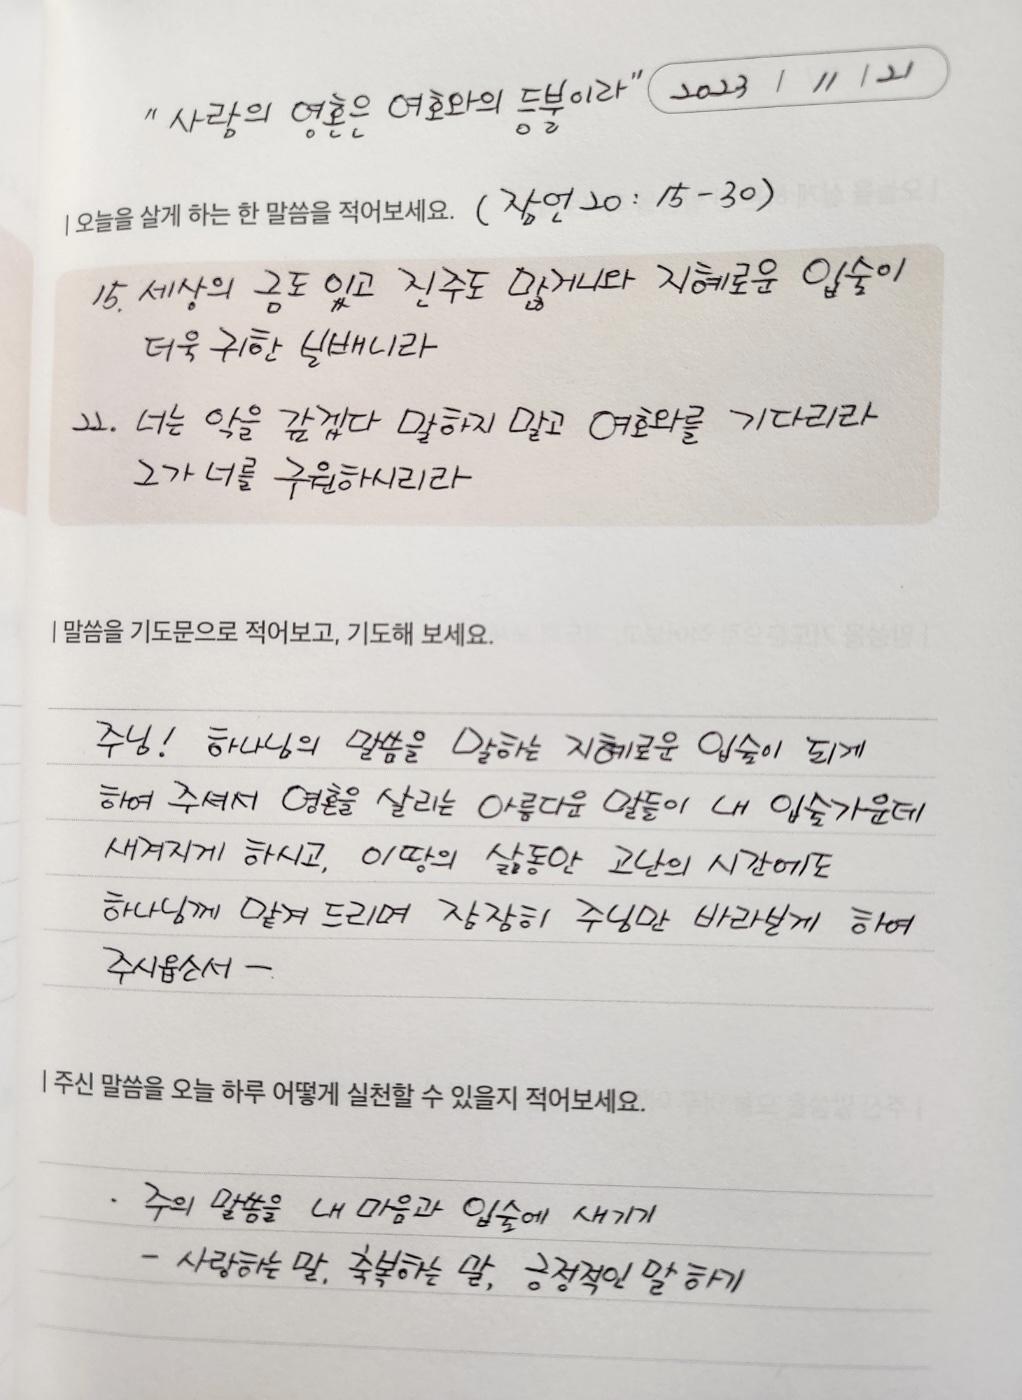 "사람의 영혼은 여호와의 등불이라" 2023 / 11 / 21
| 오늘을 살게 하는 한 말씀을 적어보세요. (잠언 20 : 15-30)
15. 세상의 금도 있고 진주도 많거니와 지혜로운 입술이
더욱 귀한 보배니라
22. 너는 악을 갚겠다 말하지 말고 여호와를 기다리라
그가 너를 구원하시리라
| 말씀을 기도문으로 적어보고, 기도해 보세요.
주님! 하나님의 말씀을 말하는 지혜로운 입술이 되게
하여 주셔서 영혼을 살리는 아름다운 말들이 내 입술가운데
새겨지게 하시고, 이땅의 삶동안 고난의 시간에도
하나님께 맡겨 드리며 잠잠히 주님만 바라보게 하여
주시옵소서 -
| 주신 말씀을 오늘 하루 어떻게 실천할 수 있을지 적어보세요.
· 주의 말씀을 내 마음과 입술에 새기기
- 사랑하는 말, 축복하는 말, 긍정적인 말 하기